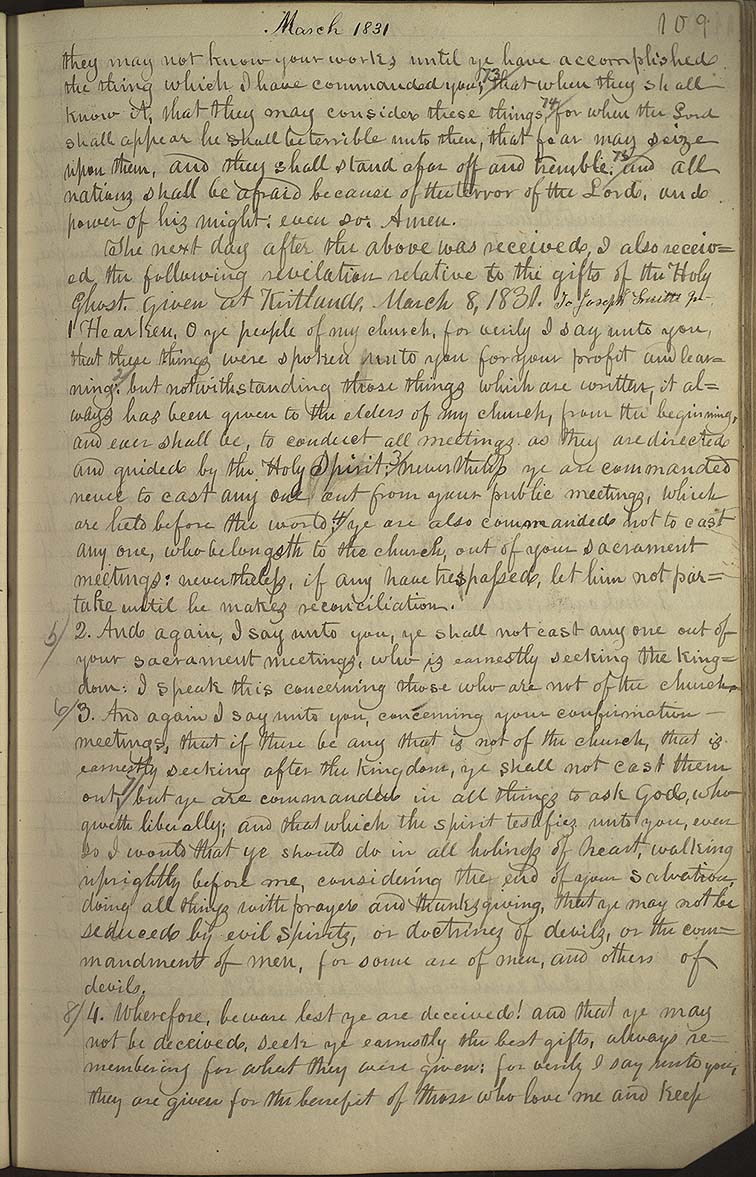 March 1831
109
they may not know your works until ye have accomplished
the thing which I have commanded you; 73/ that when they shall
know it, that they may consider these things, 74/ for when the Lord
shall appear he shall be terrible unto them, that fear may seize
upon them, and they shall stand afar off and tremble: 75/ and all
nations shall be afraid because of the terror of the Lord, and
power of his might: even so: Amen.
The next day after the above was received, I also receiv=
ed the following revelation relative to the gifts of the Holy
Ghost. Given at Kirtland, March 8, 1831. To Joseph Smith jr
1 Hearken, O ye people of my church, for verily I say unto you,
that these things were spoken unto you for your profit and lear=
ning: 2/ but notwithstanding those things which are written, it al=
ways has been given to the elders of my church, from the beginning,
and ever shall be, to conduct all meetings as they are directed
and guided by the Holy Spirit: 3/ nevertheless ye are commanded
never to cast any one out from your public meetings, which
are held before the world: 4/ ye are also commanded not to cast
any one, who belongeth to the church, out of your sacrament
meetings: nevertheless, if any have trespassed, let him not par=
take until he makes reconciliation.
5/ 2. And again, I say unto you, ye shall not cast any one out of
your sacrament meetings, who is earnestly seeking the king=
dom: I speak this concerning those who are not of the church.
6/ 3. And again I say unto you, concerning your confirmation
meetings, that if there be any that is not of the church, that is
earnestly seeking after the kingdom, ye shall not cast them
out, 7/ but ye are commanded in all things to ask God, who
giveth liberally; and that which the spirit testifies unto you, even
so I would that ye should do in all holiness of heart, walking
uprightly before me, considering the end of your salvation,
doing all things with prayer and thanksgiving, that ye may not be
seduced by evil spirits, or doctrines of devils, or the com=
mandments of men, for some are of men, and others of
devils.
8/ 4. Wherefore, beware lest ye are deceived! and that ye may
not be deceived, seek ye earnestly the best gifts, always re=
membering for what they were given: for verily I say unto you,
they are given for the benefit of those who love me and keep